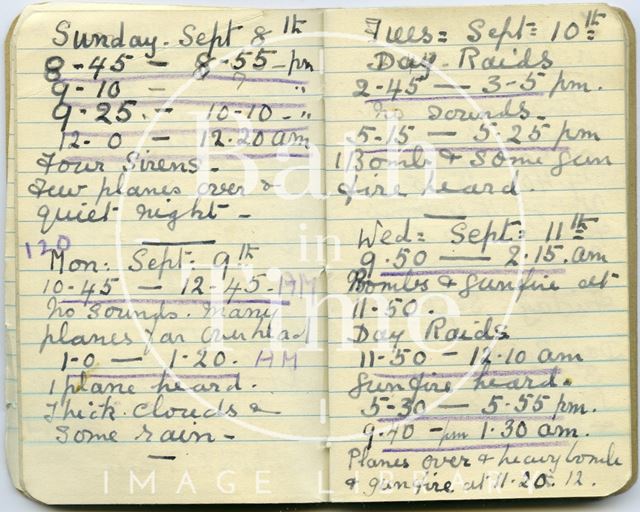 Sunday. Sept 8th
8-45 — 8-55 - pm
9-10 — ? "
9-25 — 10-10 - "
12-0 — 12.20 am
Four Sirens.
Few planes over &
quiet night -
120
Mon: Sept: 9th
10-45 — 12-45. AM
No sounds. Many
planes far overhead
1-0 — 1-20. AM
1 plane heard.
Thick clouds &
some rain -
Tues: Sept: 10th
Day. Raids
2-45 — 3-5 pm.
No sounds -
5-15 — 5 25 pm
1 Bomb & some gun
fire heard.
Wed: Sept: 11th
9.50 — 2.15. am
Bombs & gunfire at
11-50.
Day Raids
11-50 - 12.10 am
Gunfire heard.
5-30 — 5.55 pm.
9.40 - pm 1.30 am.
Planes over & heavy bomb
& gunfire at 11.20. 12.
Bath
in
Time
IMAGE LIBRARY